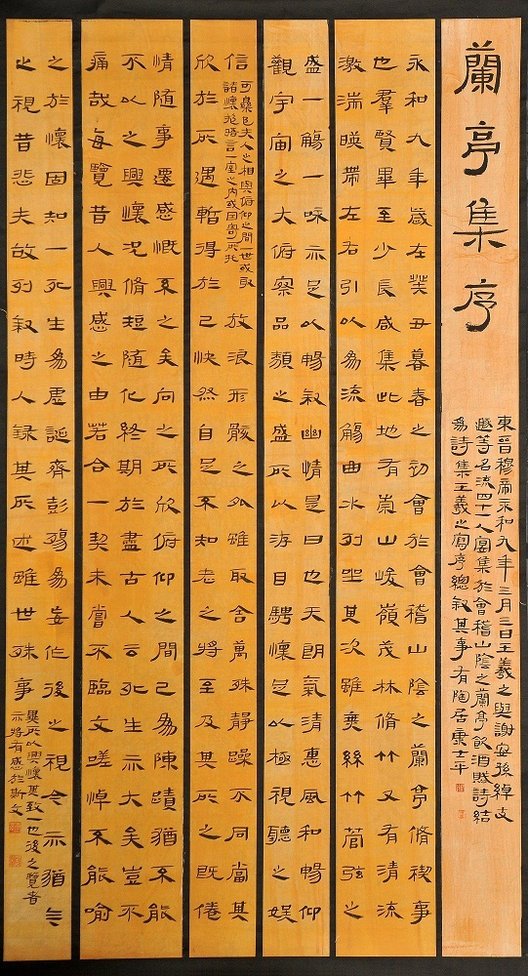 蘭亭集序
東晉穆帝永和九年三月三日王羲之與謝安孫綽支
遁等名流四十一人宴集於會稽山陰之蘭亭飲酒賦詩結
為詩集王羲之寫序總叙其事有陶居康士平
永和九年歲在癸丑暮春之初會於會稽山陰之蘭亭脩禊事
也羣賢畢至少長咸集此地有崇山峻嶺茂林脩竹又有清流
激湍暎帶左右引以為流觴曲水列坐其次雖無絲竹管弦之
盛一觴一詠亦足以暢叙幽情是日也天朗氣清惠風和暢仰
觀宇宙之大俯察品類之盛所以游目騁懷足以極視聽之娛
信
可樂也夫人之相與俯仰之間一世或取
諸懷抱悟言一室之內或因寄所托
放浪形骸之外雖取舍萬殊靜躁不同當其
欣於所遇暫得於己快然自足不知老之將至及其所之既倦
情隨事遷感慨系之矣向之所欣俯仰之間已為陳蹟猶不能
不以之興懷況脩短隨化終期於盡古人云死生亦大矣豈不
痛哉每覽昔人興感之由若合一契未嘗不臨文嗟悼不能喻
之於懷固知一死生為虛誕齊彭殤為妄作後之視今亦猶今
之視昔悲夫故列叙時人錄其所述雖世殊事
異所以興懷其致一也後之覽者
亦將有感於斯文